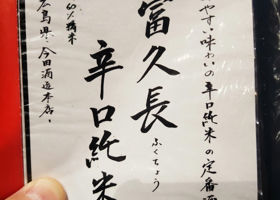 やすい味わいの辛口純米の定番酒
富久長
ふくちょう
辛口純米
60%精米
広島県・今田酒造本店・